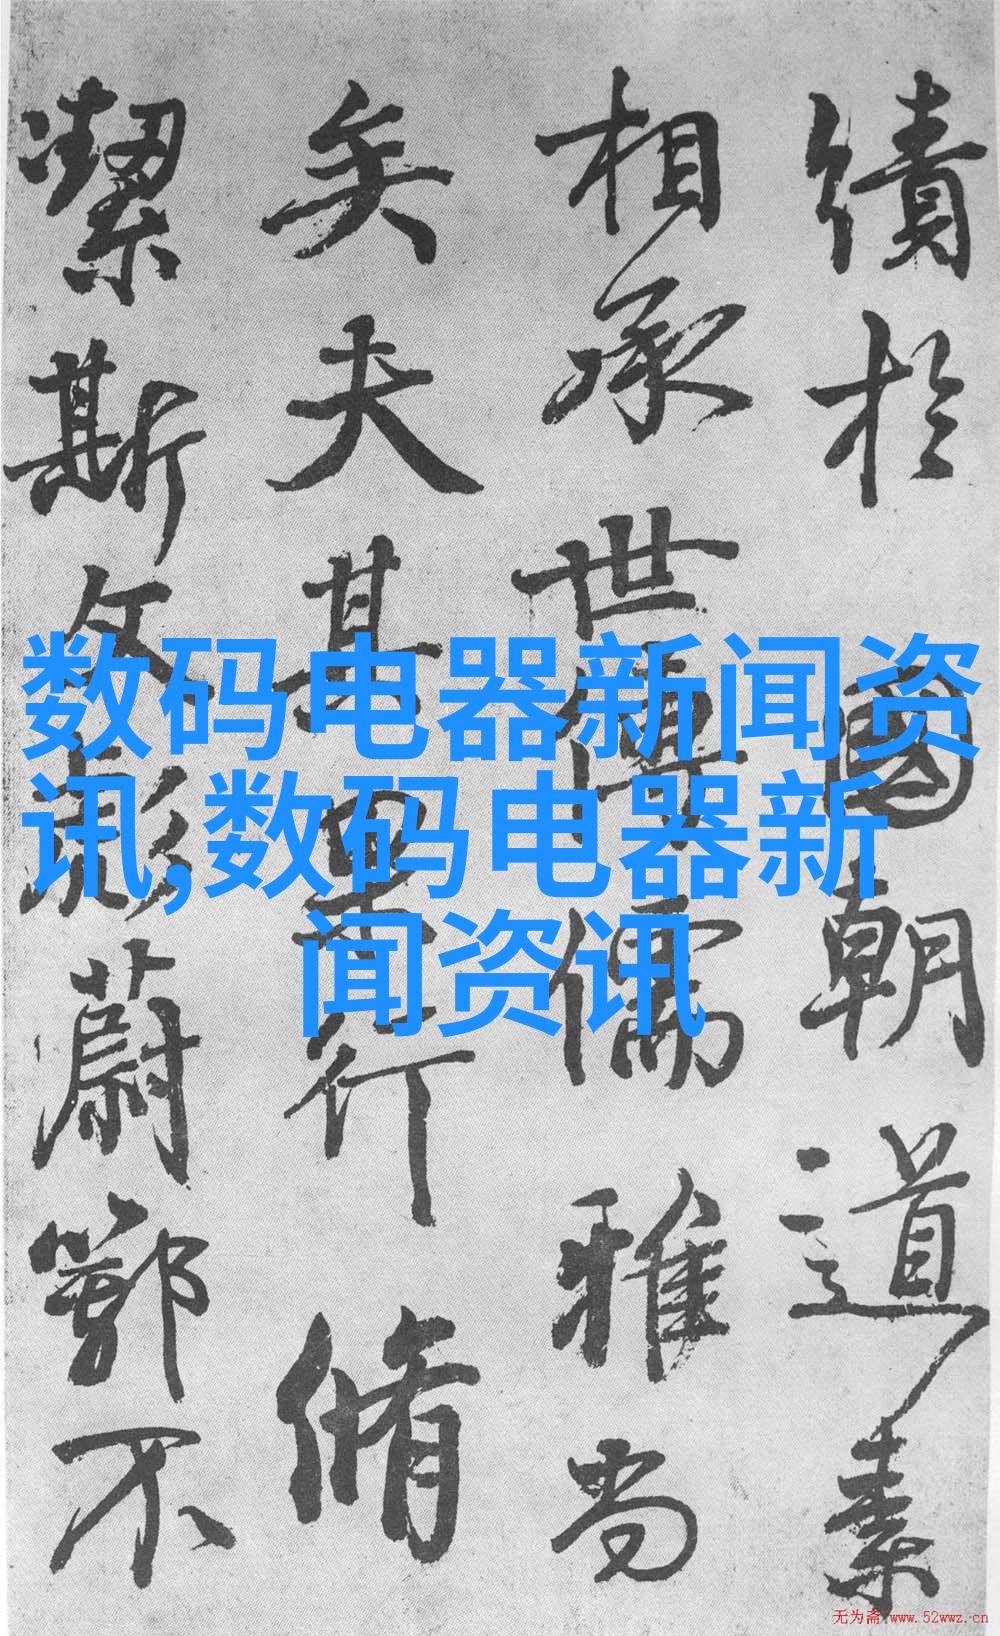 績於國朝道素
相承世傳儒雅尚
矣夫其果行脩
潔斯文彪蔚鄂不
数码电器新闻资
讯,数码电器新
闻资讯
无为斋 www.52wwz.cn